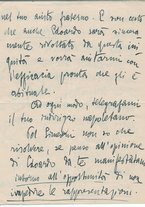 nel tuo aiuto fraterno. E son certo
che anche Edoardo sarà intima
mente rivoltato da questa ini
quità e vorrà aiutarmi con
l'efficacia pronta che gli è
abituale.
Ad ogni modo, telegrafami
il tuo indirizzo napoletano.
Pel Bracchi non so che
risolvere, se penso all'opinione
di Edoardo da te manifestatami
intorno all'opportunità di non
impedire le rappresentazioni.